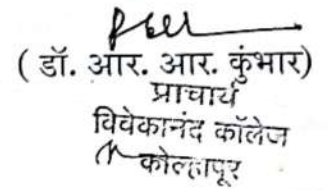 ( डॉ. आर. आर. कुंभार)
प्राचार्य
विवेकानंद कॉलेज
कोल्हापूर